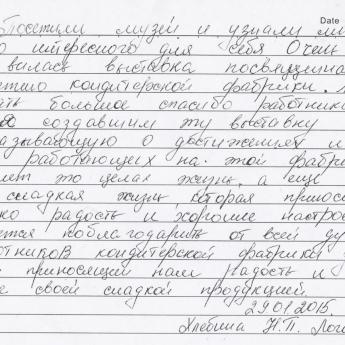 Date
Посетили музей и узнали мн
о интересного для себя Очень
вилась выставка посвящена
етию кондитерской фабрики.
ать большое спасибо работник
создавшим эту выставку
азывающую о достижениях и
работающих на этой фабри
лет это целая жизнь, а ещё
сладкая жизнь, которая принос
ко радость и хорошее настрое
ется поблагодарить от всей ду
отников кондитерской фабрики
приносящий нам радость и
е своей сладкой продукцией.
29.01.2015.
Хлебина Н.П. Лог